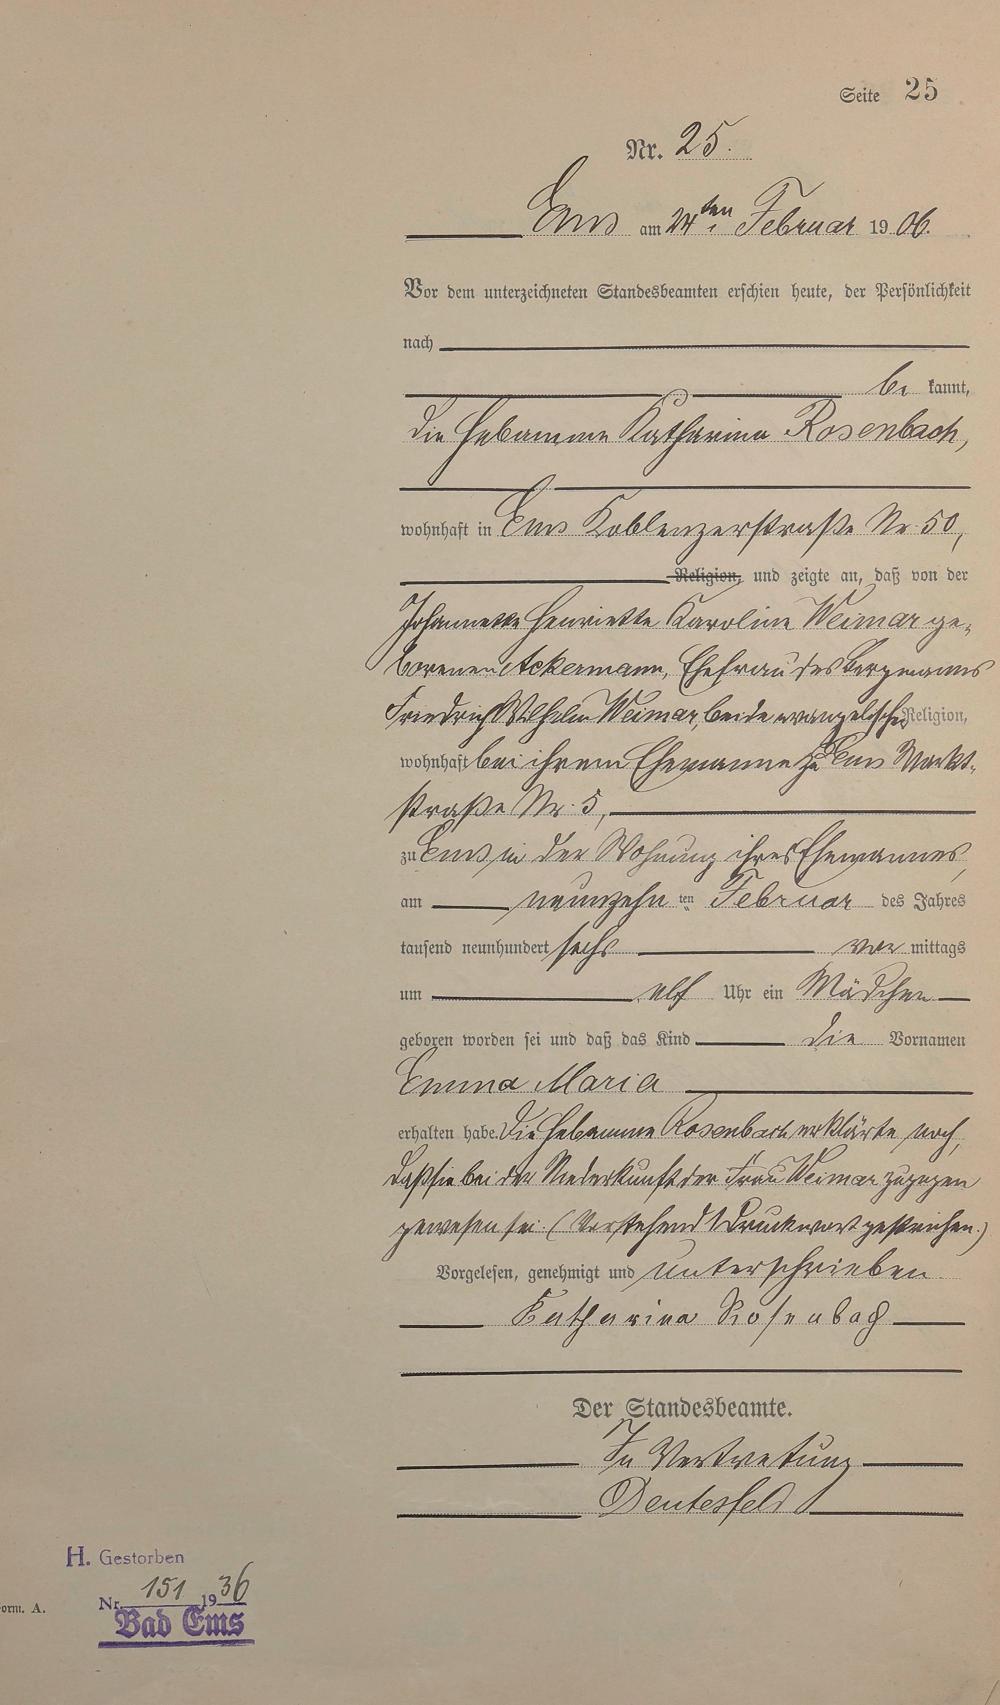 Seite 25
Nr. 25.
Ems am 24ten Februar 1906.
Vor dem unterzeichneten Standesbeamten erschien heute, der Persönlichkeit
nach
be kannt,
die Hebamme Katharina Rosenbach,
wohnhaft in Ems Koblenzerstraße Nr. 50,
Religion, und zeigte an, daß von der
Johannette Henriette Karoline Weimar ge-
borenen Ackermann, Ehefrau des Bergmanns
Friedrich Wilhelm Weimar, beide evangelischer Religion,
wohnhaft bei ihrem Ehemanne zu Ems Markt-
straße Nr. 5,
zu Ems in der Wohnung ihres Ehemannes,
am neunzehn ten Februar des Jahres
tausend neunhundert sechs vor mittags
um elf Uhr ein Mädchen
geboren worden sei und daß das Kind die Vornamen
Emma Maria
erhalten habe. Die Hebamme Rosenbach erklärte noch,
daß sie bei der Niederkunft der Frau Weimar zugegen
gewesen sei. (Vorstehend 1 Druckwort gestrichen.)
Vorgelesen, genehmigt und unterschrieben
Katharina Rosenbach
Der Standesbeamte.
In Vertretung
H. Gestorben
Nr. 151 1936
Bad Ems
orm. A.